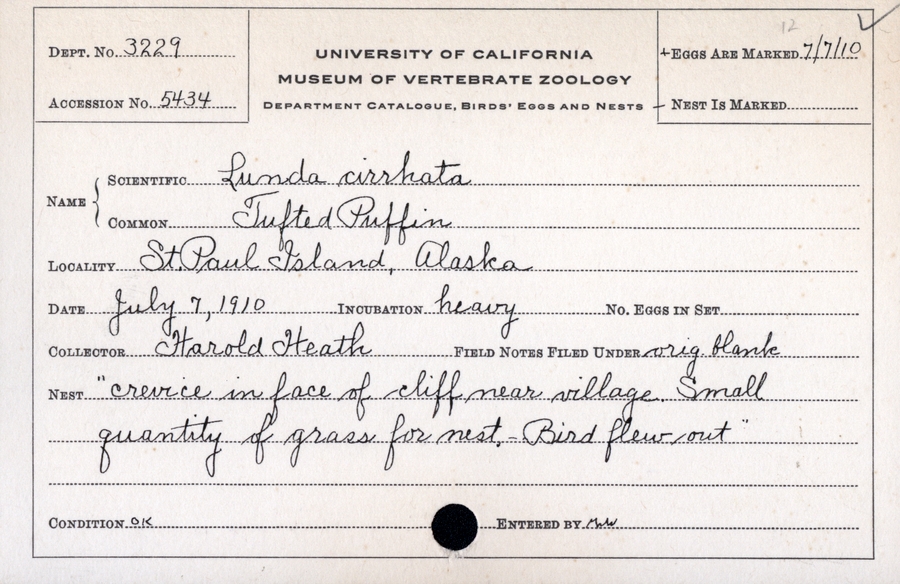 12 ✓
DEPT. No. 3229
UNIVERSITY OF CALIFORNIA
+EGGS ARE MARKED 7/7/10
MUSEUM OF VERTEBRATE ZOOLOGY
ACCESSION No. 5434
DEPARTMENT CATALOGUE, BIRDS' EGGS AND NESTS
– NEST IS MARKED
NAME { SCIENTIFIC Lunda cirrhata
COMMON Tufted Puffin
LOCALITY St. Paul Island, Alaska
DATE July 7, 1910 INCUBATION heavy NO. EGGS IN SET
COLLECTOR Harold Heath FIELD NOTES FILED UNDER orig. blank
NEST "crevice in face of cliff near village. Small
quantity of grass for nest. - Bird flew out"
CONDITION OK ENTERED BY